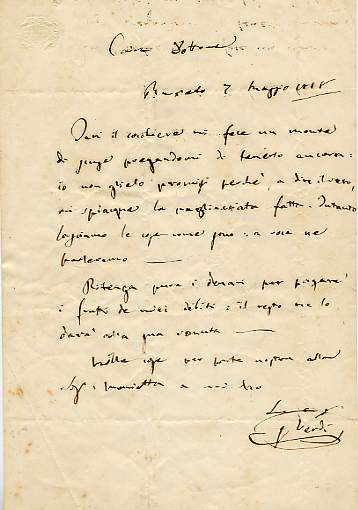 Caro Dottore
Busseto 7 Maggio
Jeri il cocchiere mi fece un monte
di pregandomi di tenerlo ancora:
io non glielo promisi perchè, a dir il vero,
mi spiacque la pagliacciata fatta. Intanto
lasciamo le cose come sono: a voce ne
parleremo —
Ritenga pure i denari per pagare
i frutti de' miei debiti: il resto me lo
darà alla sua venuta —
Mille cose per parte nostra alla
Sigra Marietta a
G Verdi